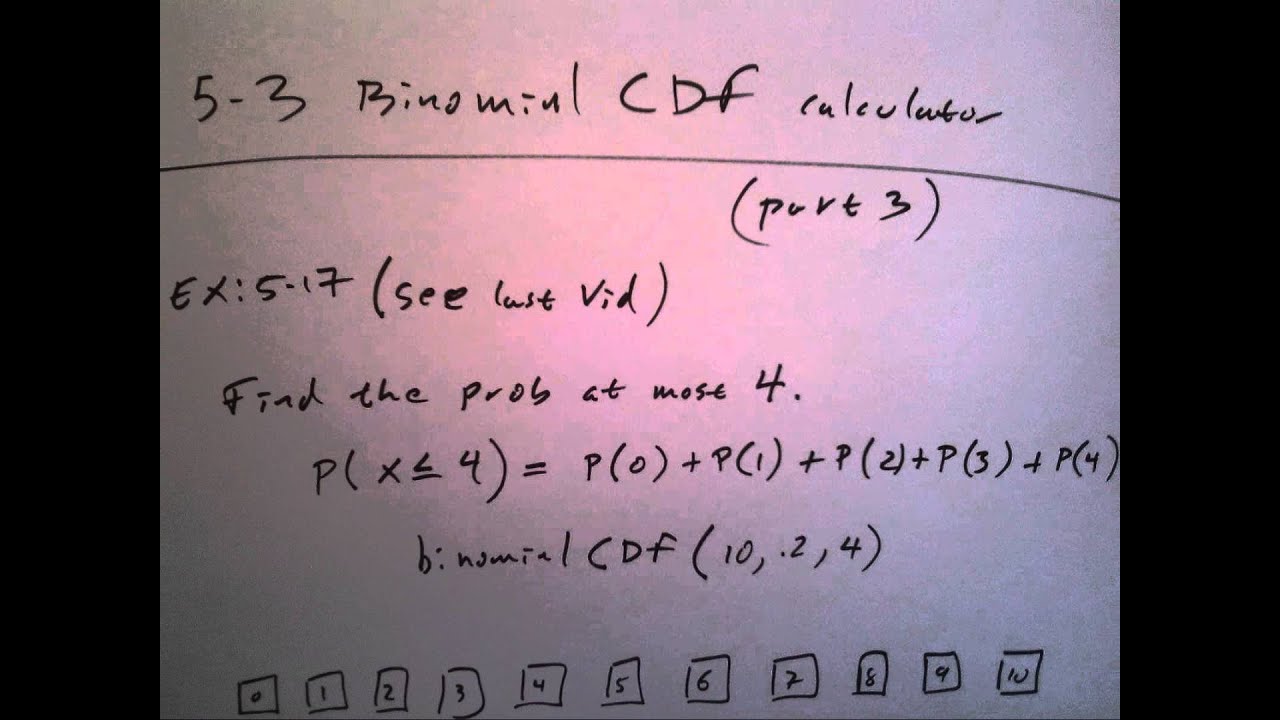 5-3 Binomial CDF calculator
(part 3)
EX: 5-17 (see last vid)
Find the prob at most 4.
P( x ≤ 4) = P(0) + P(1) + P(2) + P(3) + P(4)
binomial CDF (10, .2, 4)
0 1 2 3 4 5 6 7 8 9 10